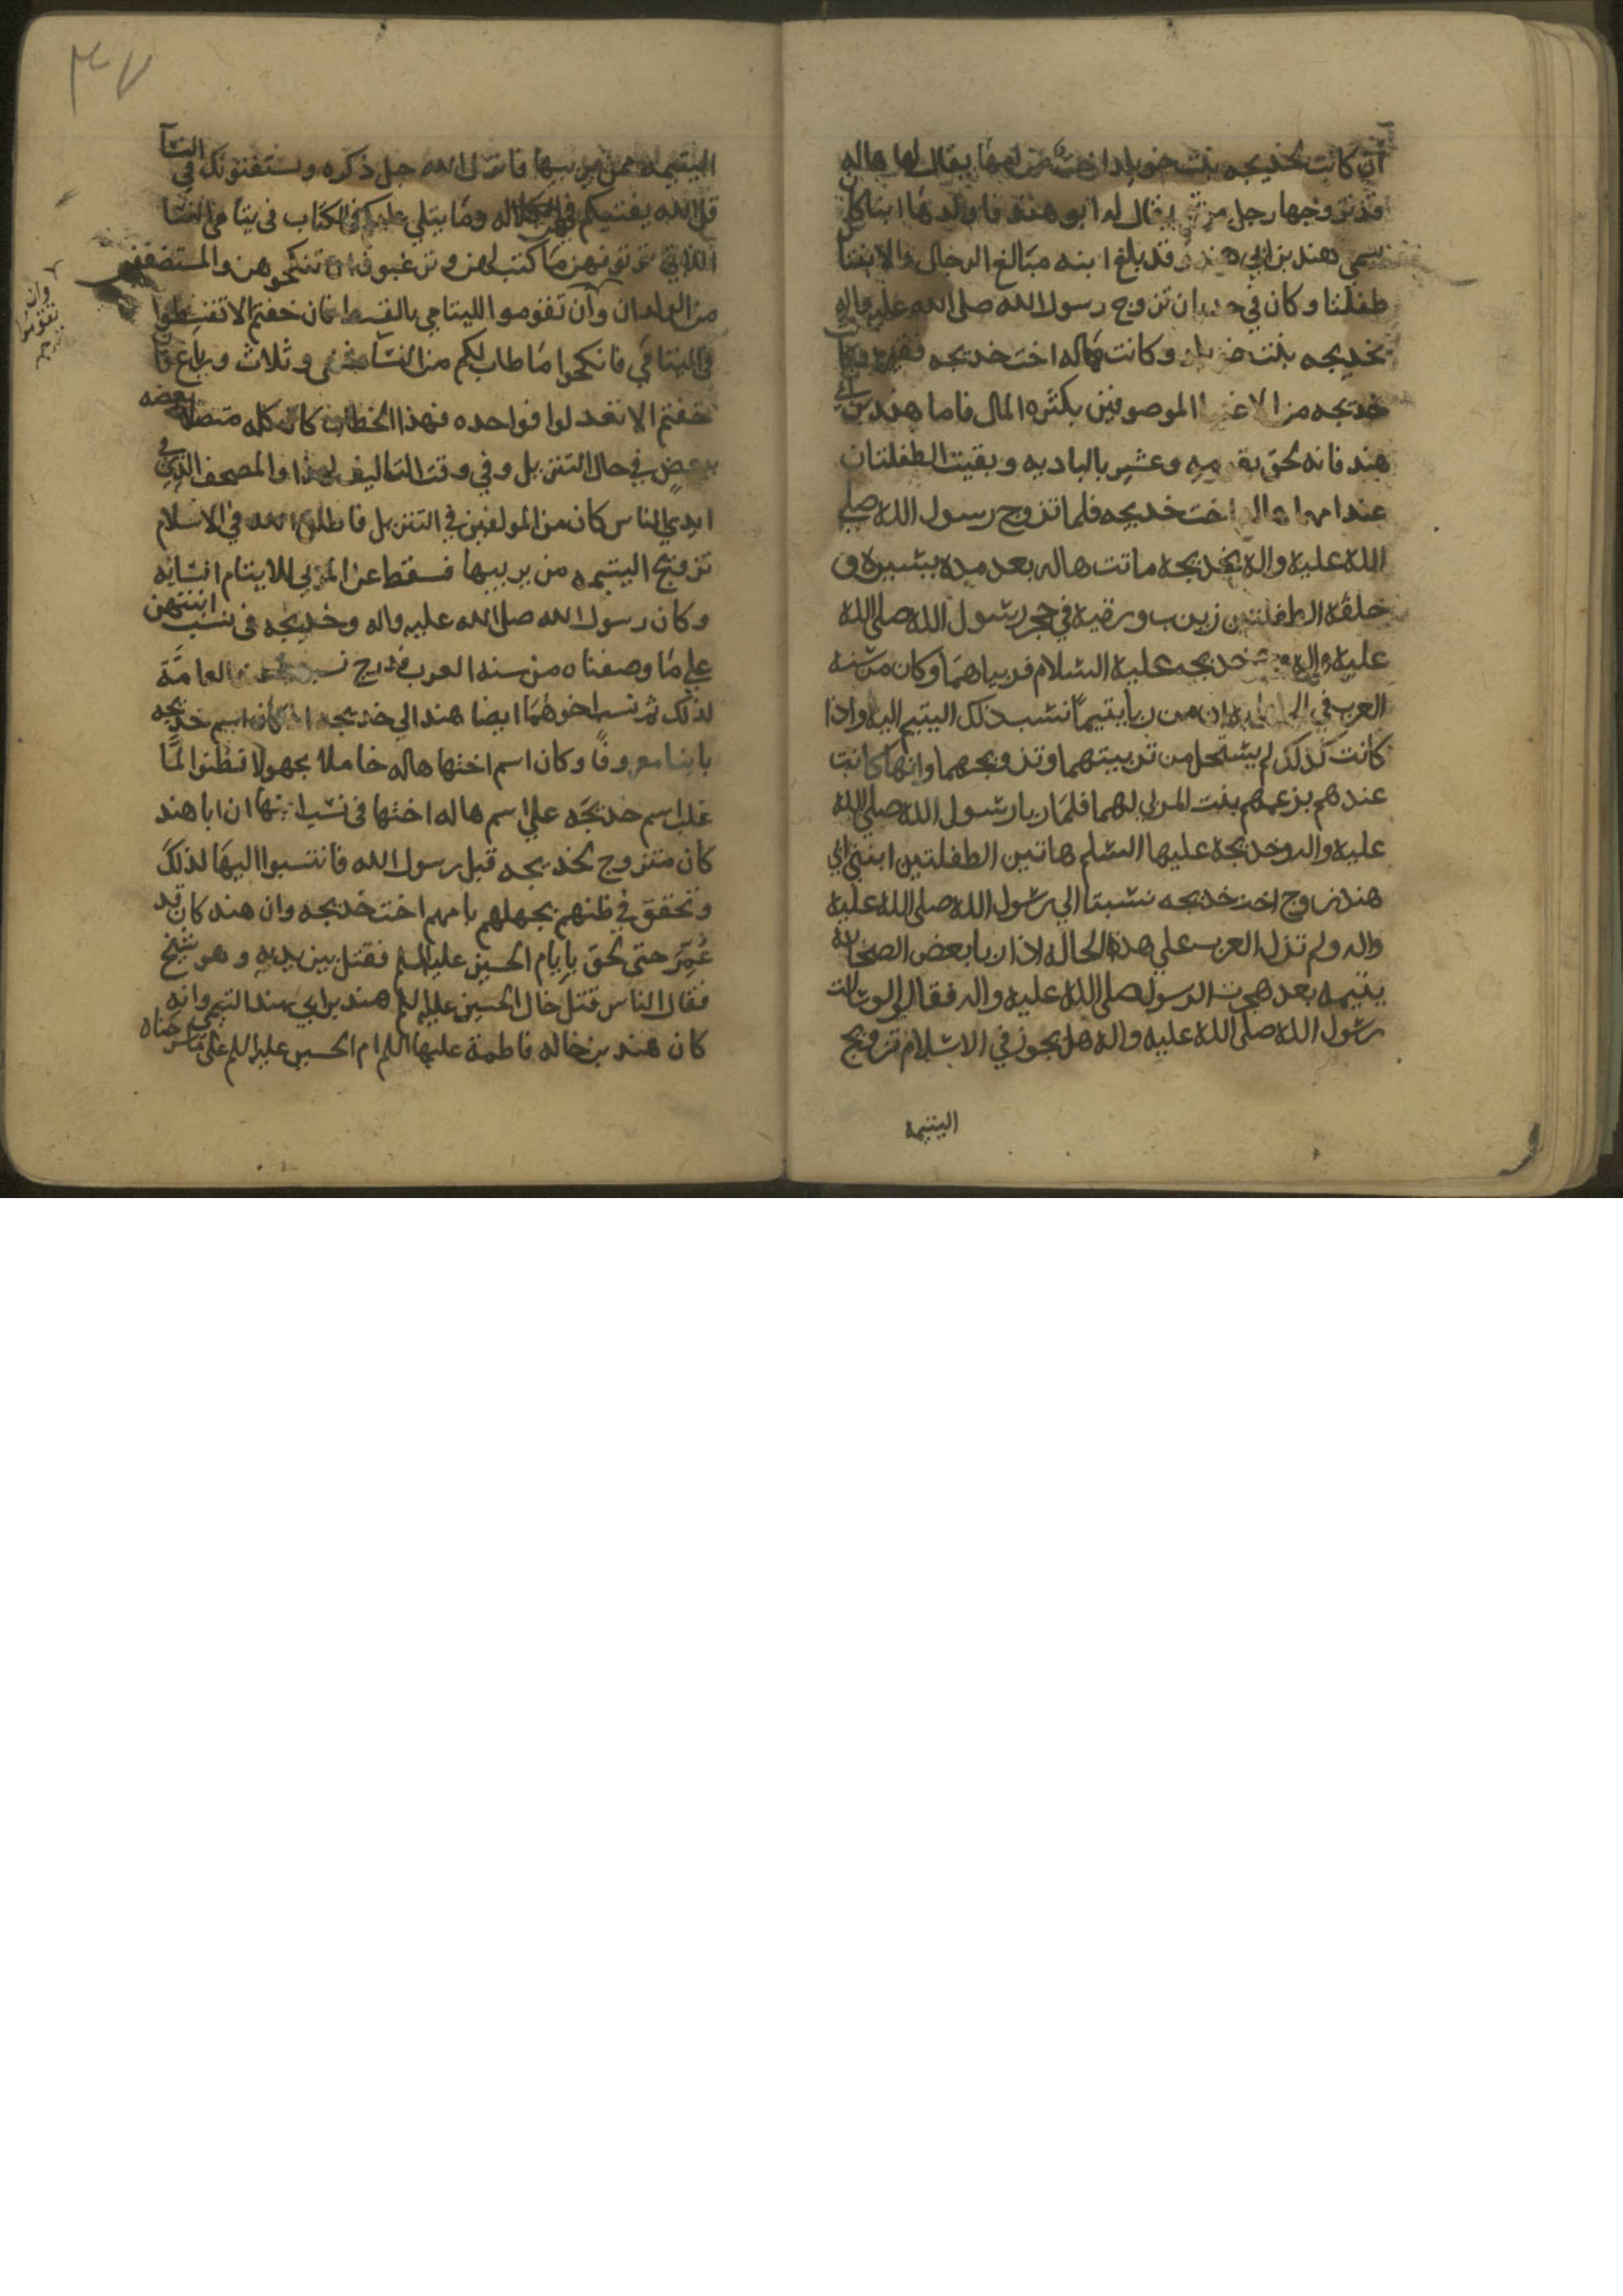 ان كانت لخديجه بنت خويلد اخت من امها يقال لها هاله
قد تزوجها رجل من يقال له ابو هند فاولدها ابنا كان
يسمي هند بن ابي هند وقد بلغ ابنه مبالغ الرجال والابنتان
طفلتان وكان في ان تزوج رسول الله صلى الله عليه واله
بخديجه بنت وكانت هاله اخت خديجه فقيره وكانت
خديجه من الموصوفين بكثره المال فاما هند بن ابي
هند فانه لحق بقومه وعشيرته بالباديه وبقيت الطفلتان
عند امهما هاله اخت خديجه فلما تزوج رسول الله صلى
الله عليه واله بخديجه ماتت هاله بعد مده يسيره و
خلفه الطفلتين زينب ورقيه في حجر رسول الله صلى الله
عليه واله خديجه عليه السلام فربياهما وكان من سنه
العرب في من ربا يتيما نسب ذلك اليتيم اليه واذا
كانت كذلك لم يستحل من تربيتهما وتزويجهما وانها كانت
عندهم بزعمهم بنت المربي لهما فلما ربا رسول الله صلى الله
عليه واله وخديجه عليها السلم هاتين الطفلتين ابنتي ابي
هند زوج اخت خديجه نسبتا الى رسول الله صلى الله عليه
واله ولم تزل العرب على هذه الحاله اذا ربا بعض الصحابه
يتيمه بعد هجرت الرسول صلى الله عليه واله فقالوا لو سالت
رسول الله صلى الله عليه واله هل يجوز في الاسلام تزويج
اليتيمه
٣٧
اليتيمه ممن يربيها فانزل الله جل ذكره ويستفتونك في النسآ
قل الله يفتيكم فيهن وما يتلي عليكم في الكتاب في يتامى النسا
اللاتي لا توتونهن ما كتب لهن وترغبون ان تنكحوهن والمستضعفين
من الولدان وان تقوموا لليتامي بالقسط فان خفتم الا تقسطوا
في اليتامي فانكحوا ما طاب لكم من النسآ مثنى وثلاث ورباع فان
خفتم الا تعدلوا فواحده فهذا الخطاب كان كله متصلا بعضه
ببعض في حال التنزيل وفي وقت التاليف لهذا والمصحف الذي في
ايدي الناس كان من المولفين في التنزيل فاطلق الله في الاسلام
تزويج اليتيمه من يربيها فسقط عن المربي للايتام انتسابه
وكان رسول الله صلى الله عليه واله وخديجه في نسب ابنتهن
على ما وصفناه من سنه العرب فدرج العامة
لذلك ثم نسب اخوهما ايضا هند الي خديجه اذ كان اسم خديجه
معروفا وكان اسم اختها هاله خاملا مجهولا فظنوا لما
غلب اسم خديجه علي اسم هاله اختها في نسب ان ابا هند
كان متزوج بخديجه قبل رسول الله فانتسبوا اليها لذلك
وتحقق في ظنهم بجهلهم بامهم اخت خديجه وان هند كان قد
عُمّر حتى لحق بايام الحسين عليه السلم فقتل بين يديه وهو شيخ
فقال الناس قتل خال الحسين عليه السلم هند بن ابي هند التيمي وانه
كان هند بن خاله فاطمة عليها السلم ام الحسين عليه السلم على
وان تقوموا